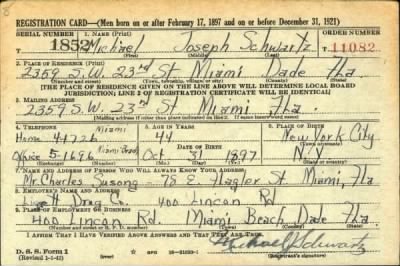 REGISTRATION CARD—(Men born on or after February 17, 1897 and on or before December 31, 1921)
SERIAL NUMBER 1. NAME (Print) ORDER NUMBER
1852 Michael Joseph Schwartz 11082
(First) (Middle) (Last)
2. PLACE OF RESIDENCE (Print)
2359 S.W. 23rd St Miami Dade Fla.
(Number and street) (Town, township, village, or city) (County) (State)
[THE PLACE OF RESIDENCE GIVEN ON THE LINE ABOVE WILL DETERMINE LOCAL BOARD
JURISDICTION; LINE 2 OF REGISTRATION CERTIFICATE WILL BE IDENTICAL]
3. MAILING ADDRESS
2359 S.W. 23rd St Miami Fla.
[Mailing address if other than place indicated on line 2. If same insert word same]
4. TELEPHONE 5. AGE IN YEARS 6. PLACE OF BIRTH
Home 41726 Miami 44 New York City
DATE OF BIRTH
Office 5-1691 Miami Beach Oct 31 1897 N.Y.
7. NAME AND ADDRESS OF PERSON WHO WILL ALWAYS KNOW YOUR ADDRESS
Mr. Charles Susong - 78 E. Flagler St Miami, Fla
8. EMPLOYER'S NAME AND ADDRESS
Drug Co. 400 Lincon Rd
9. PLACE OF EMPLOYMENT OR BUSINESS
400 Lincon Rd. Miami Beach, Dade Fla.
(Number and street or R. F. D. number) (Town) (County) (State)
I AFFIRM THAT I HAVE VERIFIED ABOVE ANSWERS AND THAT THEY ARE TRUE.
D. S. S. Form 1
(Revised 1-1-42) GPO
Michael J Schwartz
(Registrant's signature)